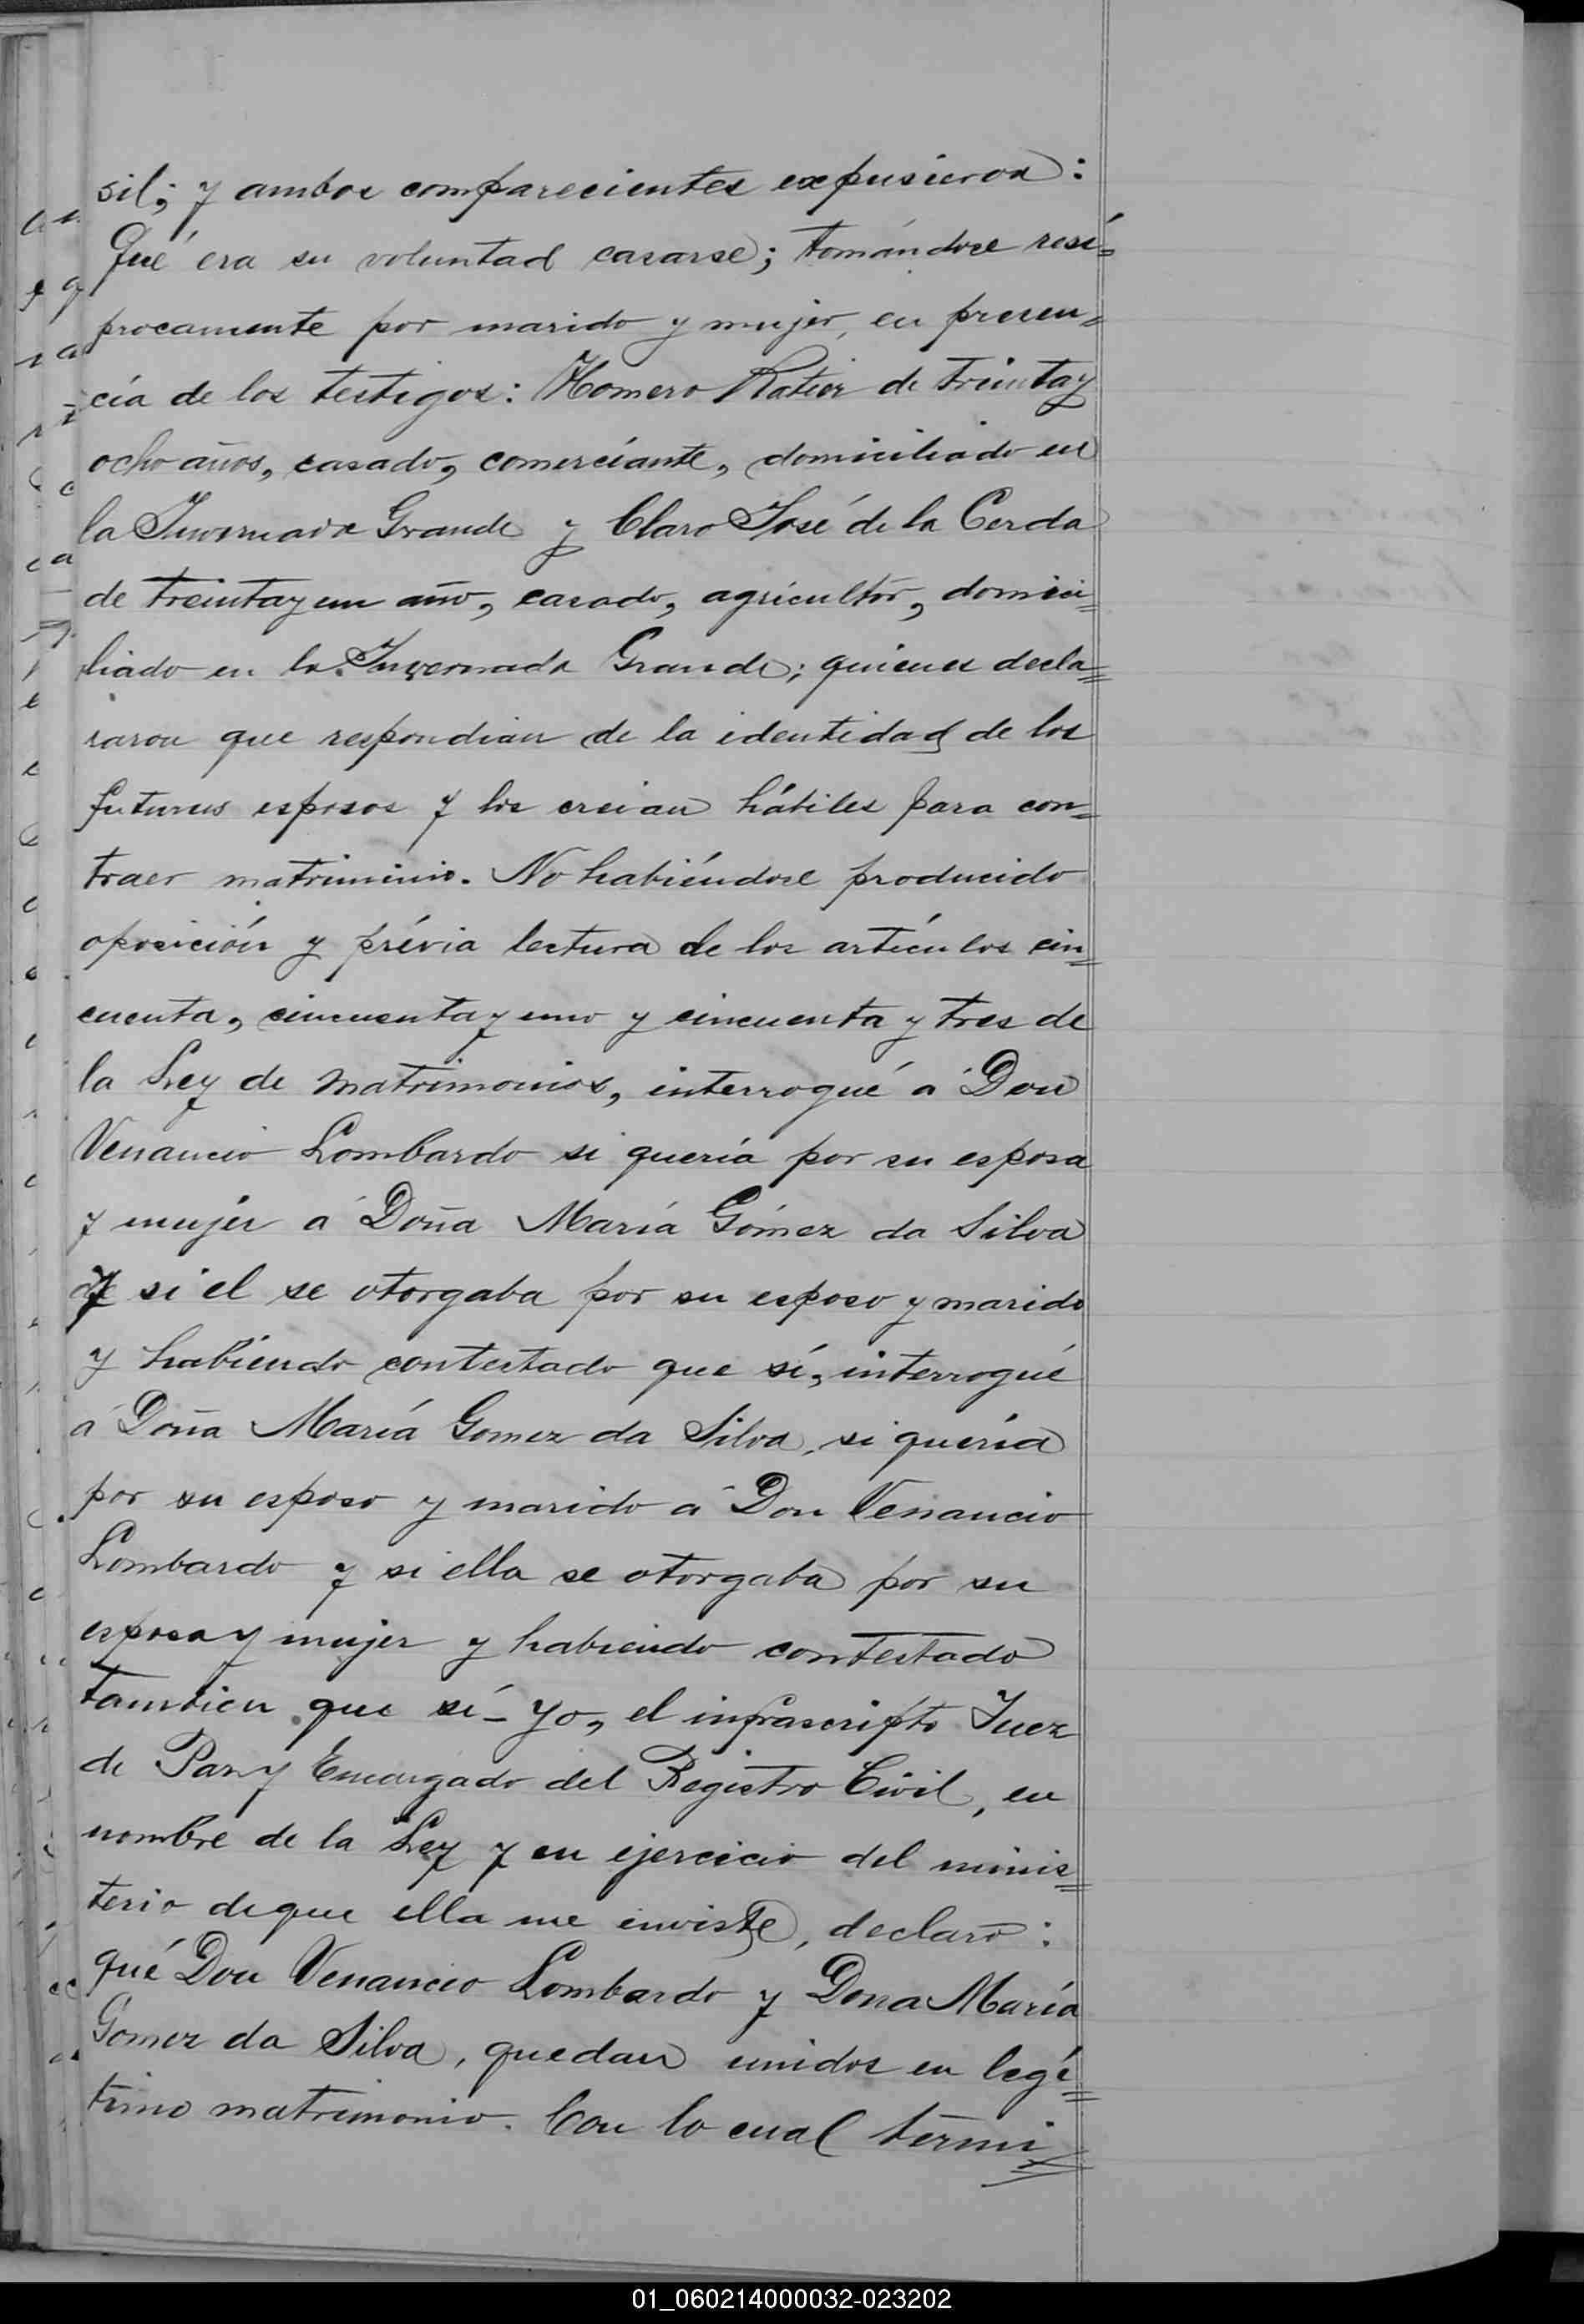 sil; y ambos comparecientes expusieron:
Qué era su voluntad casarse; tomándose resí=
procamente por marido y mujer, en presen=
cía de los testigos: Homero Ratier de treinta y
ocho años, casado, comerciante, domiciliado en
la Invernada Grande y Claro José de la Cerda
de treinta y un año, casado, agricultor, domici=
liado en la Invernada Grande; quienes decla=
raron que respondian de la identidad de los
futuros esposos y los creian hábiles para con=
traer matrimonio. No habiéndose producido
oposición y prévia lectura de los artículos cin=
cuenta, cincuenta y uno y cincuenta y tres de
la Ley de Matrimonios, interrogué á Don
Venancio Lombardo si quería por su esposa
y mujer á Doña María Gómez da Silva
y si el se otorgaba por su esposo y marido
y habiendo contestado que sí, interrogué
á Doña María Gomez da Silva, si quería
por su esposo y marido á Don Venancio
Lombardo y si ella se otorgaba por su
esposa y mujer y habiendo contestado
tambien que sí - Yo, el infrascripto Juez
de Paz y Encargado del Registro Civil, en
nombre de la Ley y en ejercicio del minis=
terio de que ella me enviste, declaro:
qué Don Venancio Lombardo y Dona María
Gómez da Silva, quedan unidos en legí=
timo matrimonio. Con lo cual termi=
01_060214000032-023202